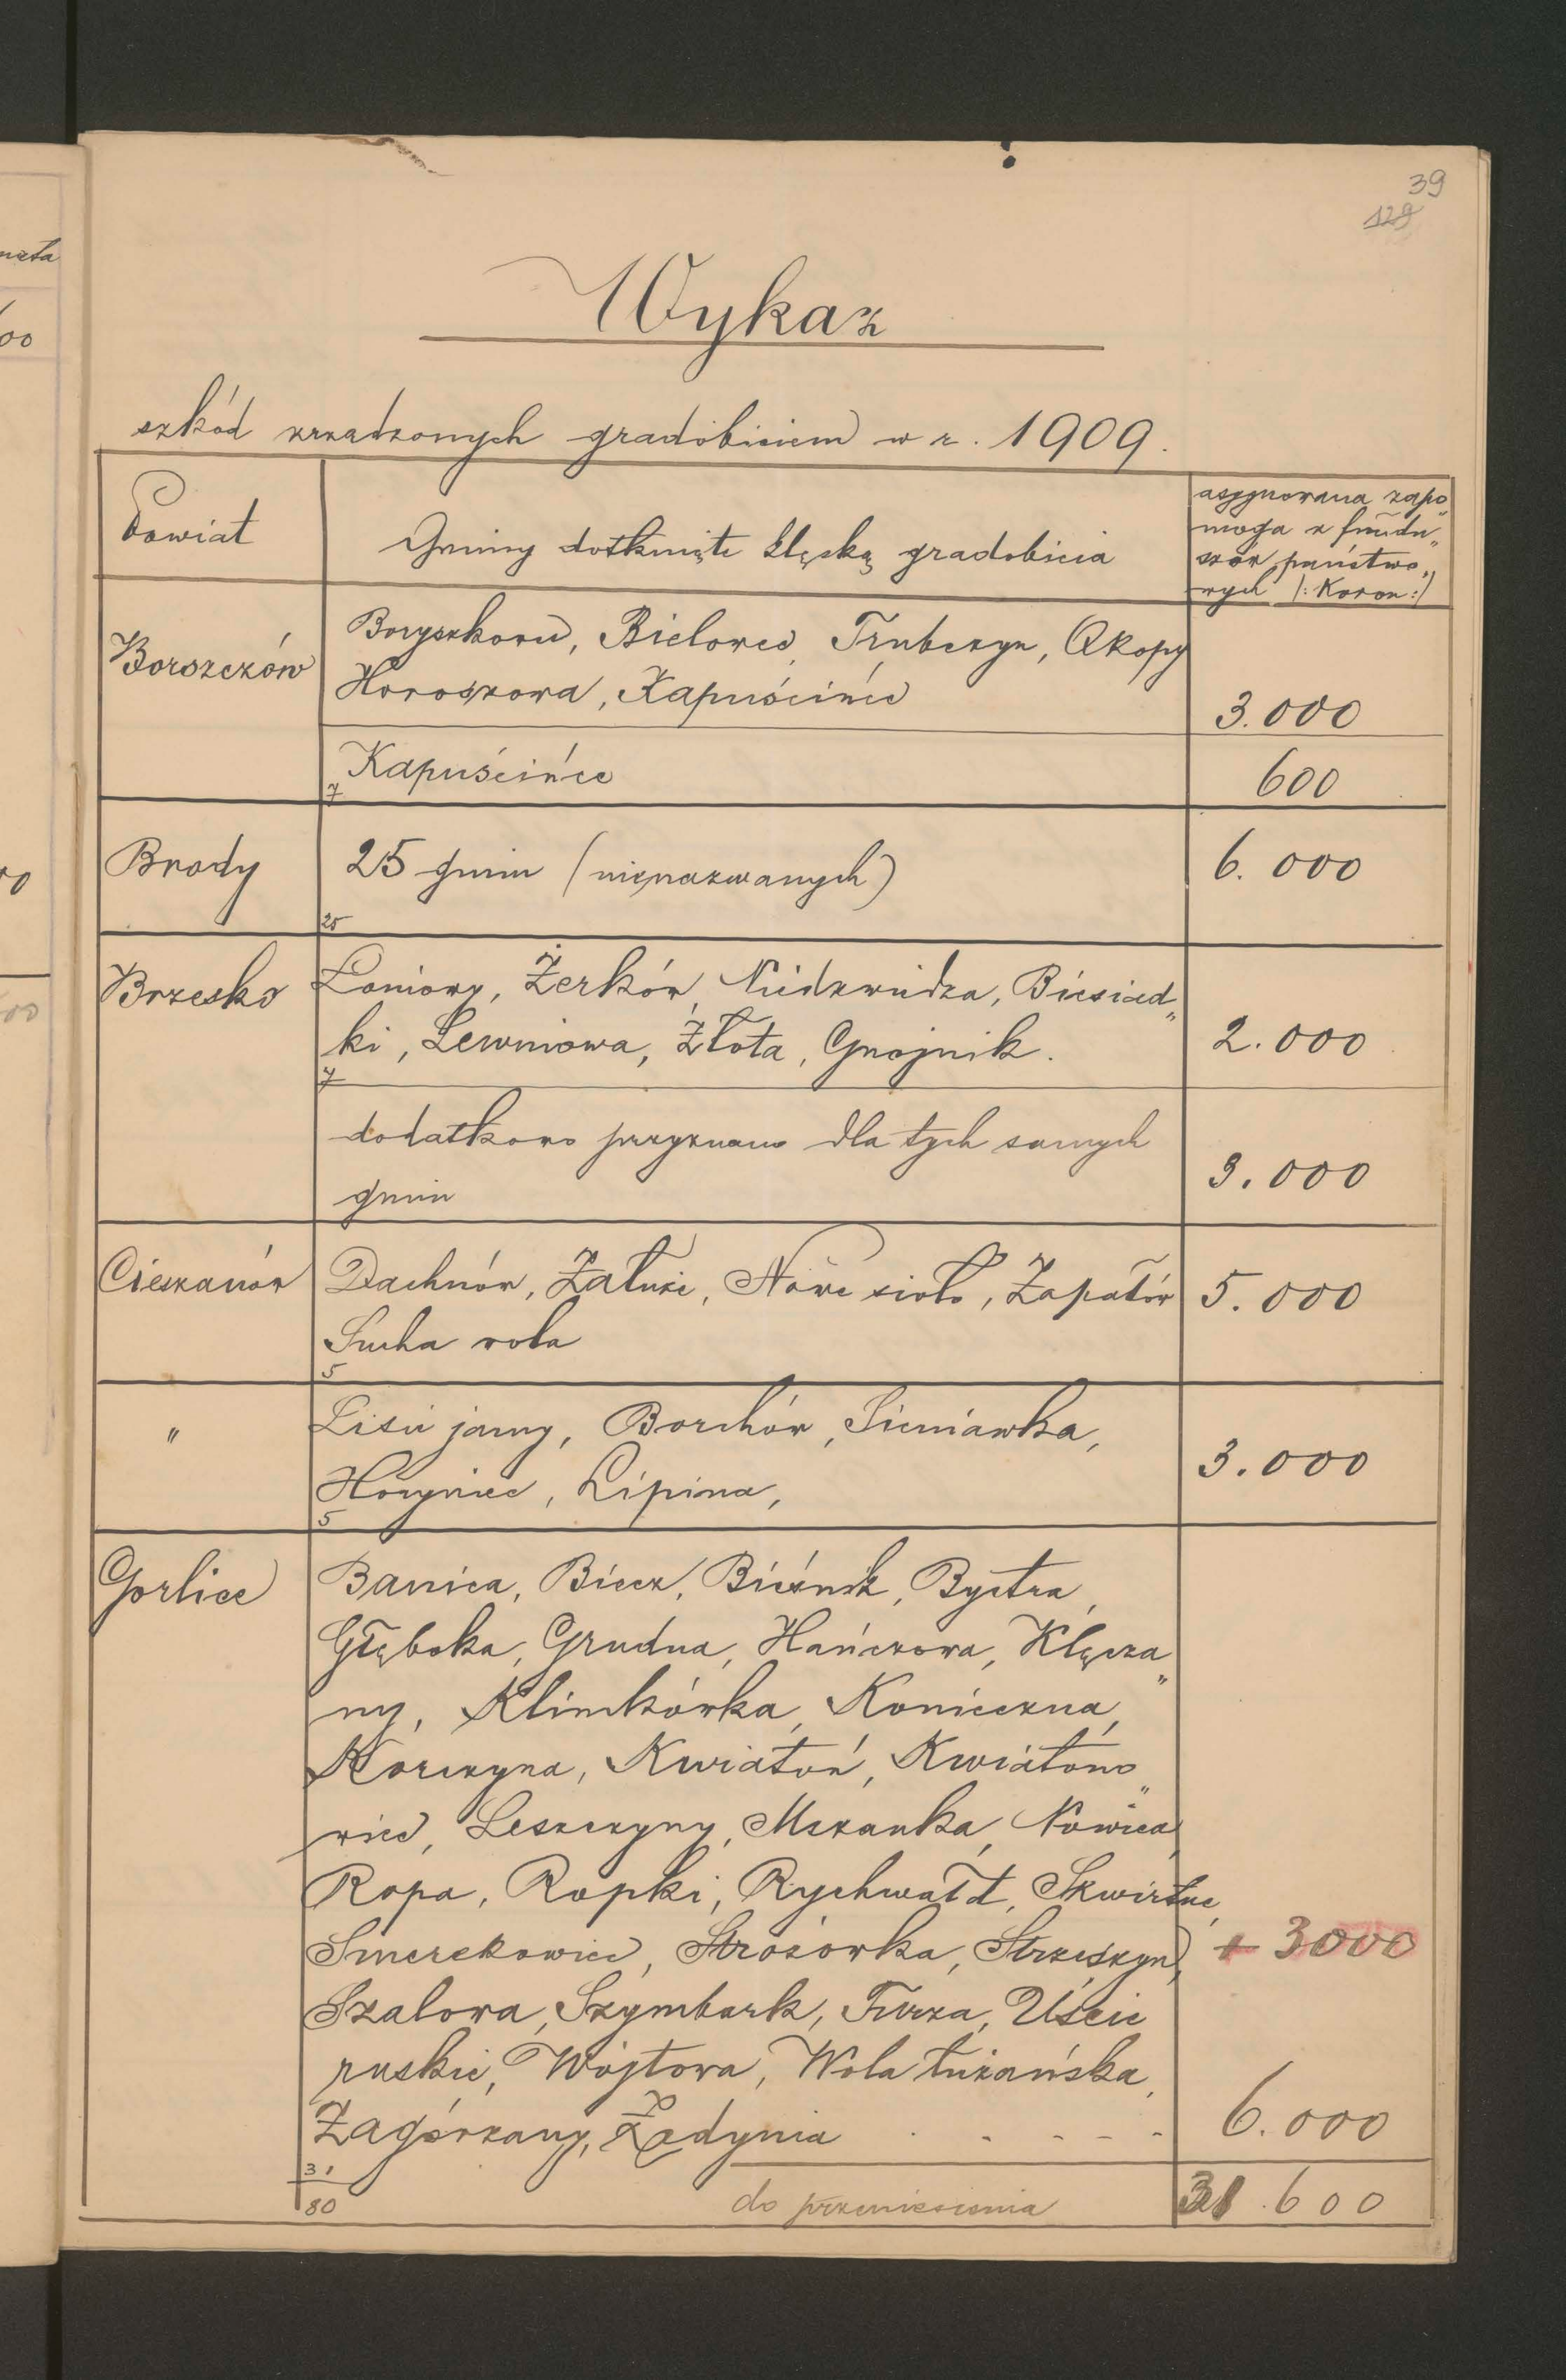 nata
00
00
00
39
129
Wykaz
szkód zrządzonych gradobiciem w r. 1909.
Powiat
Gminy dotknięte klęską gradobicia
asygnowana zapo„
moga z fundu„
szów państwo„
wych (: Koron :)
Borszczów
Boryszkowce, Bielowce, Trubczyn, Okopy
Horoszowa, Kapuścińce
3.000
Kapuścińce
600
7
Brody
25 gmin (nienazwanych)
6.000
25
Brzesko
Łoniowy, Żerków, Niedzwiedza, Biesiad„
ki, Lewniowa, Złota, Gnojnik.
2.000
7
dodatkowo przyznano dla tych samych
gmin
3.000
Cieszanów
Dachnów, Załuże, Nowe sioło, Zapałów
5.000
Sucha wola
5
"
Lisie jamy, Borchów, Sieniawka,
Horyniec, Lipina,
3.000
5
Gorlice
Banica, Biecz, Bieśnik, Bystra,
Głęboka, Grudna, Hańczowa, Klęcza„
ny, Klimkówka, Konieczna,
Korczyna, Kwiatoń, Kwiatono„
wice, Leszczyny, Mszanka, Nowica,
Ropa, Ropki, Rychwałd, Skwirtne,
Smerekowiec, Stróżówka, Strzeszyn,
+ 3000
Szalowa, Szymbark, Turza, Uście
ruskie, Wójtowa, Wola łużańska,
Zagórzany, Żdynia . - - - -
6.000
31
80
do przeniesienia
31.600